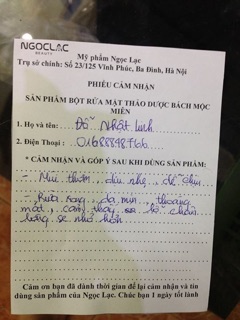 NGOCLAC
BEAUTY
Mỹ phẩm Ngọc Lạc
Trụ sở chính: Số 23/125 Vĩnh Phúc, Ba Đình, Hà Nội
PHIẾU CẢM NHẬN
SẢN PHẨM BỘT RỬA MẶT THẢO DƯỢC BÁCH MỘC
MIÊN
1. Họ và tên: Đỗ Nhật Linh
2. Điện Thoại: 01688898766
* CẢM NHẬN VÀ GÓP Ý SAU KHI DÙNG SẢN PHẨM:
- Mùi thơm, dịu nhẹ, dễ chịu
- Rửa xong da mịn, thoáng
mát, cảm thấy se lỗ chân
lông se nhỏ hơn
Cảm ơn bạn đã dành thời gian để lại cảm nhận và tin
dùng sản phẩm của Ngọc Lạc. Chúc bạn 1 ngày tốt lành